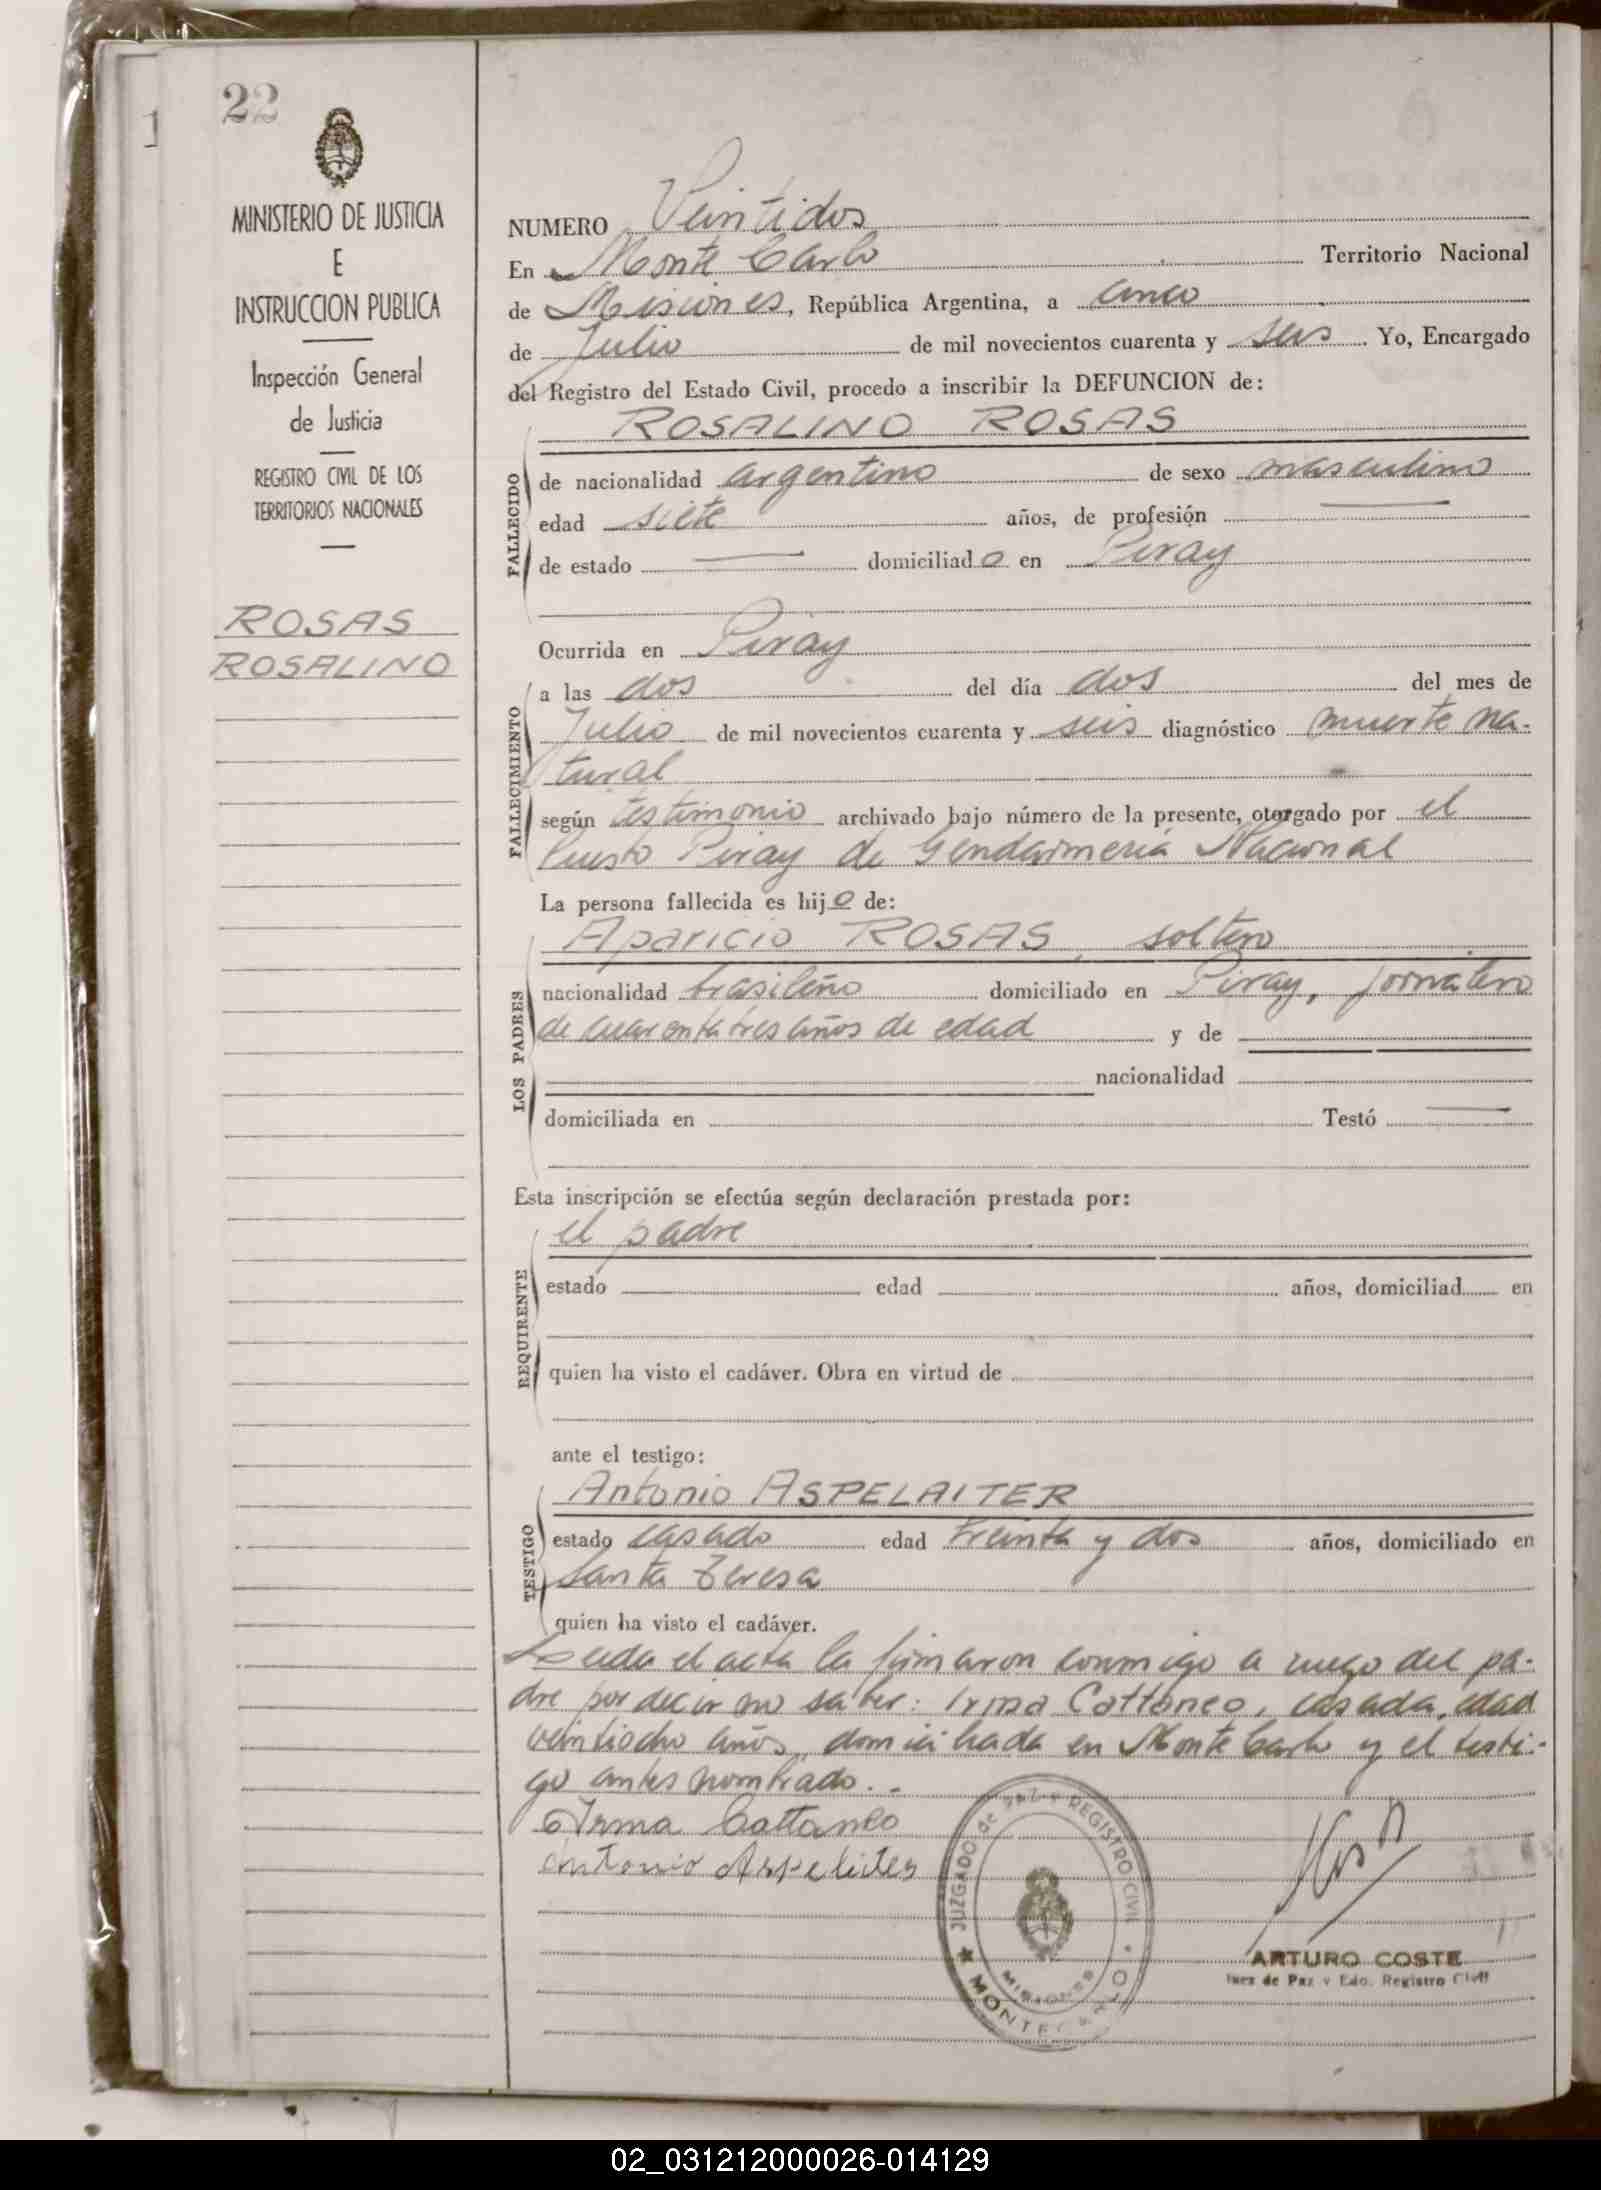 22
1
MINISTERIO DE JUSTICIA
E
INSTRUCCION PUBLICA
Inspección General
de Justicia
REGISTRO CIVIL DE LOS
TERRITORIOS NACIONALES
ROSAS
ROSALINO
NUMERO Veintidos
En Monte Carlo Territorio Nacional
de Misiones, República Argentina, a cinco
de Julio de mil novecientos cuarenta y seis Yo, Encargado
del Registro del Estado Civil, procedo a inscribir la DEFUNCION de:
ROSALINO ROSAS
FALLECIDO
de nacionalidad argentino de sexo masculino
edad siete años, de profesión —
de estado — domiciliado en Piray
Ocurrida en Piray
FALLECIMIENTO
a las dos del día dos del mes de
Julio de mil novecientos cuarenta y seis diagnóstico muerte na-
tural
según testimonio archivado bajo número de la presente, otorgado por el
Puesto Piray de Gendarmeria Nacional
La persona fallecida es hijo de:
LOS PADRES
Aparicio ROSAS, soltero
nacionalidad brasileño domiciliado en Piray, jornalero
de cuarenta tres años de edad y de
nacionalidad
domiciliada en Testó —
Esta inscripción se efectúa según declaración prestada por:
REQUIRENTE
el padre
estado edad años, domiciliad en
quien ha visto el cadáver. Obra en virtud de
ante el testigo:
TESTIGO
Antonio ASPELAITER
estado casado edad treinta y dos años, domiciliado en
Santa Teresa
quien ha visto el cadáver.
Leida el acta la firmaron conmigo a ruego del pa-
dre por decir no saber: Irma Cattaneo, casada, edad
veintiocho años, domiciliada en Monte Carlo y el testi-
go antes nombrado.-
Irma Cattaneo
Antonio Aspeleiter
JUZGADO DE PAZ Y REGISTRO CIVIL
MISIONES
MONTECARLO
ARTURO COSTE
Juez de Paz y Edo. Registro Civil
02_031212000026-014129